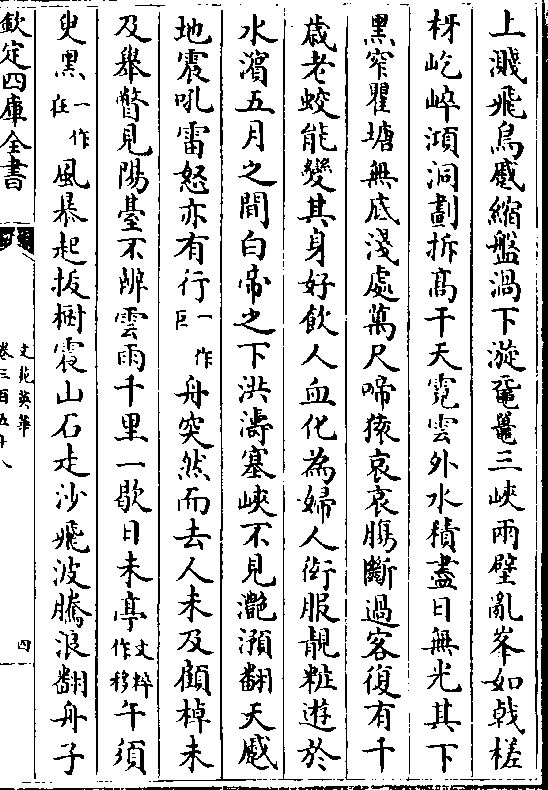 上濺飛鳥蹙縮盤渦下漩黿鼉三峽兩壁亂峯如戟槎
枒屹崪澒洞劃拆髙干天霓雲外水積盡日無光其下
黒窄瞿塘無底淺處萬尺啼猿哀哀膓斷過客復有千
歳老蛟能變其身好飲人血化為婦人衒服靚粧遊於
水濵五月之間白帝之下洪濤塞峽不見灔澦翻天蹙
地震吼雷怒亦有行一作巨舟突然而去人未及顧棹未
及舉瞥見陽臺不辨雲雨千里一歇日未亭文粹作移午須
臾黒一作在風暴起拔樹震山石走沙飛波騰浪翻舟子
欽定四庫全書
文苑英華
卷三百五十八
四